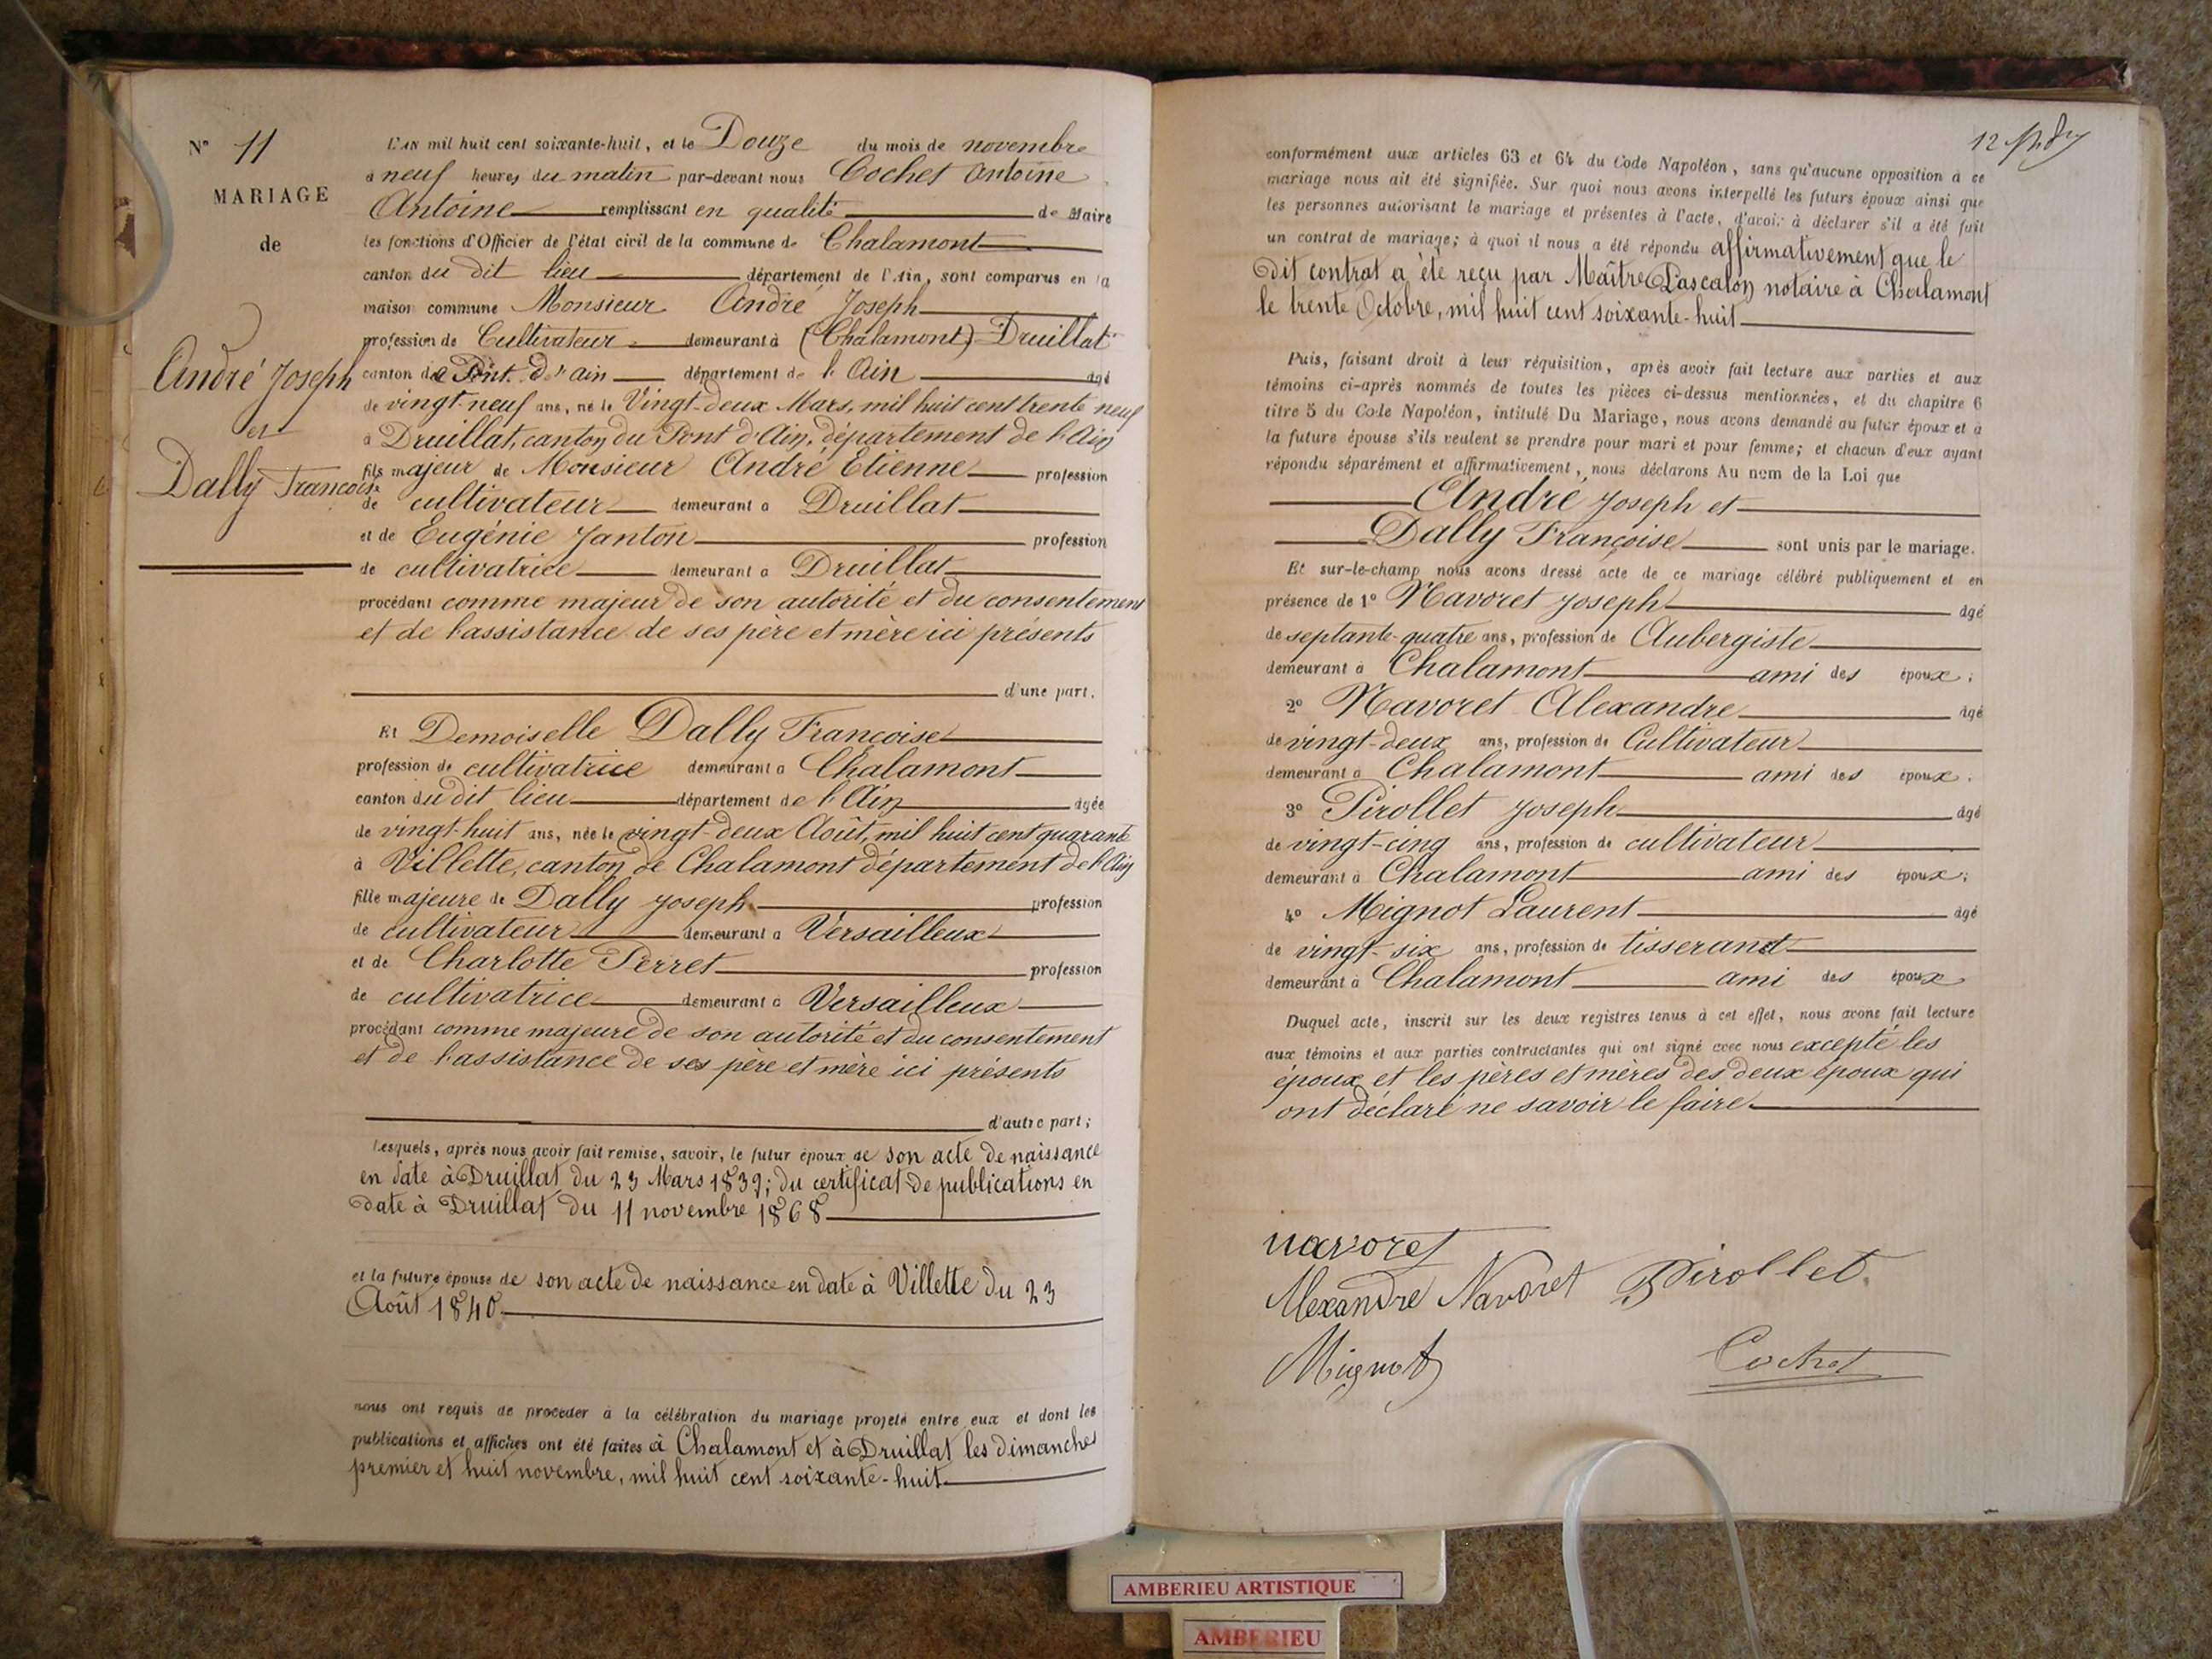 N° 11
MARIAGE
de
André Joseph
et
Dally Françoise
L'an mil huit cent soixante-huit, et le Douze du mois de novembre
à neuf heures du matin par-devant nous Cochet Antoine
Antoine remplissant en qualité de Maire
les fonctions d'Officier de l'état civil de la commune de Chalamont
canton du dit lieu département de l'Ain, sont comparus en la
maison commune Monsieur André Joseph
profession de Cultivateur demeurant à (Chalamont) Druillat
canton de Pont d'ain département de l'Ain âgé
de vingt-neuf ans, né le Vingt-deux Mars, mil huit cent trente neuf
à Druillat, canton du Pont d'Ain, département de l'Ain
fils majeur de Monsieur André Etienne profession
de cultivateur demeurant à Druillat
et de Eugénie Janton profession
de cultivatrice demeurant à Druillat
procédant comme majeur de son autorité et du consentement
et de l'assistance de ses père et mère ici présents
d'une part.
Et Demoiselle Dally Françoise
profession de cultivatrice demeurant à Chalamont
canton du dit lieu département de l'Ain âgée
de vingt-huit ans, née le vingt-deux Août, mil huit cent quarante
à Villette, canton de Chalamont département de l'Ain
fille majeure de Dally Joseph profession
de cultivateur demeurant à Versailleux
et de Charlotte Perret profession
de cultivatrice demeurant à Versailleux
procédant comme majeure de son autorité et du consentement
et de l'assistance de ses père et mère ici présents
d'autre part;
Lesquels, après nous avoir fait remise, savoir, le futur époux de son acte de naissance
en date à Druillat du 23 Mars 1839; du certificat de publications en
date à Druillat du 11 novembre 1868
et la future épouse de son acte de naissance en date à Villette du 23
Août 1840
nous ont requis de procéder à la célébration du mariage projeté entre eux et dont les
publications et affiches ont été faites à Chalamont et à Druillat les dimanches
premier et huit novembre, mil huit cent soixante-huit
conformément aux articles 63 et 64 du Code Napoléon, sans qu'aucune opposition à ce
mariage nous ait été signifiée. Sur quoi nous avons interpellé les futurs époux ainsi que
les personnes autorisant le mariage et présentes à l'acte, d'avoir à déclarer s'il a été fait
un contrat de mariage; à quoi il nous a été répondu affirmativement que le
dit contrat a été reçu par Maître Pascalon notaire à Chalamont
le trente Octobre, mil huit cent soixante-huit
Puis, faisant droit à leur réquisition, après avoir fait lecture aux parties et aux
témoins ci-après nommés de toutes les pièces ci-dessus mentionnées, et du chapitre 6
titre 5 du Code Napoléon, intitulé Du Mariage, nous avons demandé au futur époux et à
la future épouse s'ils veulent se prendre pour mari et pour femme; et chacun d'eux ayant
répondu séparément et affirmativement, nous déclarons Au nom de la Loi que
André Joseph et
Dally Françoise sont unis par le mariage.
Et sur-le-champ nous avons dressé acte de ce mariage célébré publiquement et en
présence de 1° Navoret Joseph âgé
de septante-quatre ans, profession de Aubergiste
demeurant à Chalamont ami des époux;
2° Navoret Alexandre âgé
de vingt-deux ans, profession de Cultivateur
demeurant à Chalamont ami des époux.
3° Pirollet Joseph âgé
de vingt-cinq ans, profession de cultivateur
demeurant à Chalamont ami des époux;
4° Mignot Laurent âgé
de vingt-six ans, profession de tisserand
demeurant à Chalamont ami des époux
Duquel acte, inscrit sur les deux registres tenus à cet effet, nous avons fait lecture
aux témoins et aux parties contractantes qui ont signé avec nous excepté les
époux et les pères et mères des deux époux qui
ont déclaré ne savoir le faire
navoret
Alexandre Navoret Pirollet
Mignot Cochet
AMBERIEU ARTISTIQUE
AMBERIEU